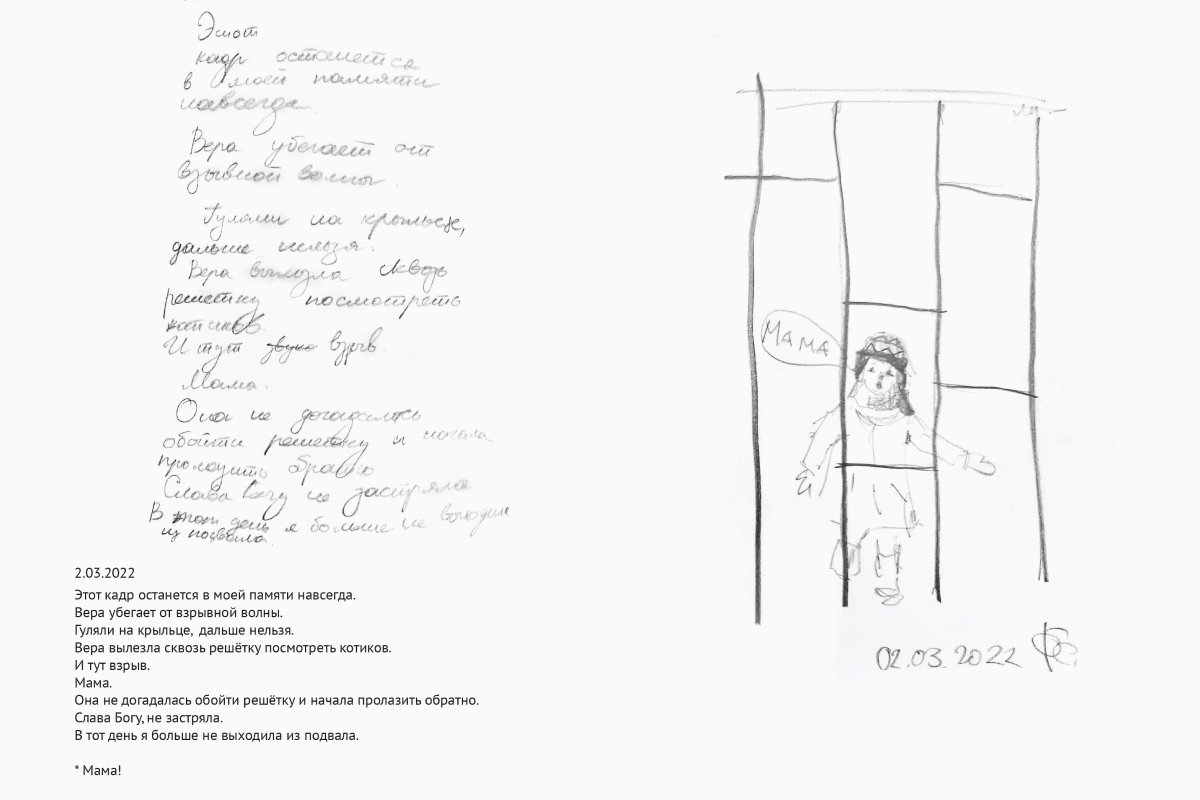 Этот
кадр останется
в моей памяти
навсегда.
Вера убегает от
взрывной волны
Гуляли на крыльце,
дальше нельзя.
Вера вылезла сквозь
решетку посмотреть
котиков.
И тут звук взрыв.
Мама.
Она не догадалась
обойти решетку и начала
пролазить обратно
Слава Богу не застряла
В тот день я больше не выходила
из подвала.
МАМА
02.03.2022
2.03.2022
Этот кадр останется в моей памяти навсегда.
Вера убегает от взрывной волны.
Гуляли на крыльце, дальше нельзя.
Вера вылезла сквозь решётку посмотреть котиков.
И тут взрыв.
Мама.
Она не догадалась обойти решётку и начала пролазить обратно.
Слава Богу, не застряла.
В тот день я больше не выходила из подвала.
* Мама!